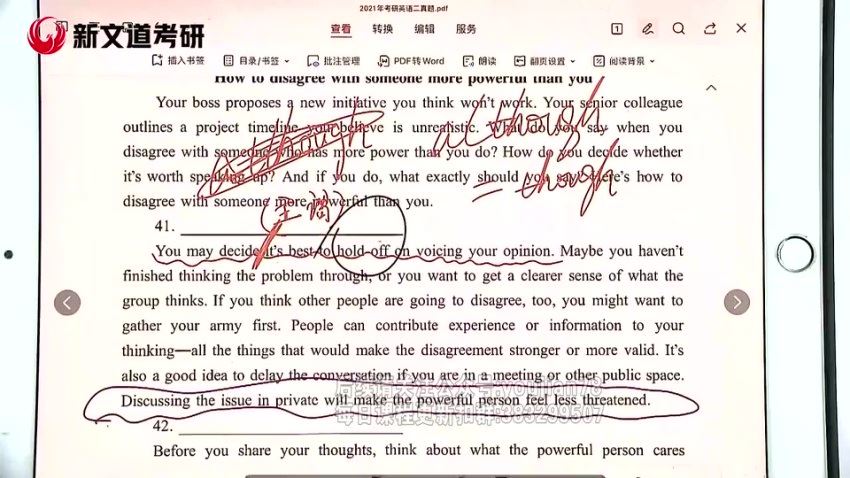 2021年考研英语二真题.pdf
新文道考研
查看 转换 编辑 服务
插入书签 目录/书签 批注管理 PDF转Word 朗读 翻页设置 阅读背景
How to disagree with someone more powerful than you
Your boss proposes a new initiative you think won't work. Your senior colleague
outlines a project timeline you believe is unrealistic. What do you say when you
disagree with someone who has more power than you do? How do you decide whether
it's worth speaking up? And if you do, what exactly should you say? Here's how to
disagree with someone more powerful than you.
although
although
= though
(主谓)
41.
You may decide it's best to hold off on voicing your opinion. Maybe you haven't
finished thinking the problem through, or you want to get a clearer sense of what the
group thinks. If you think other people are going to disagree, too, you might want to
gather your army first. People can contribute experience or information to your
thinking—all the things that would make the disagreement stronger or more valid. It's
also a good idea to delay the conversation if you are in a meeting or other public space.
Discussing the issue in private will make the powerful person feel less threatened.
42.
Before you share your thoughts, think about what the powerful person cares